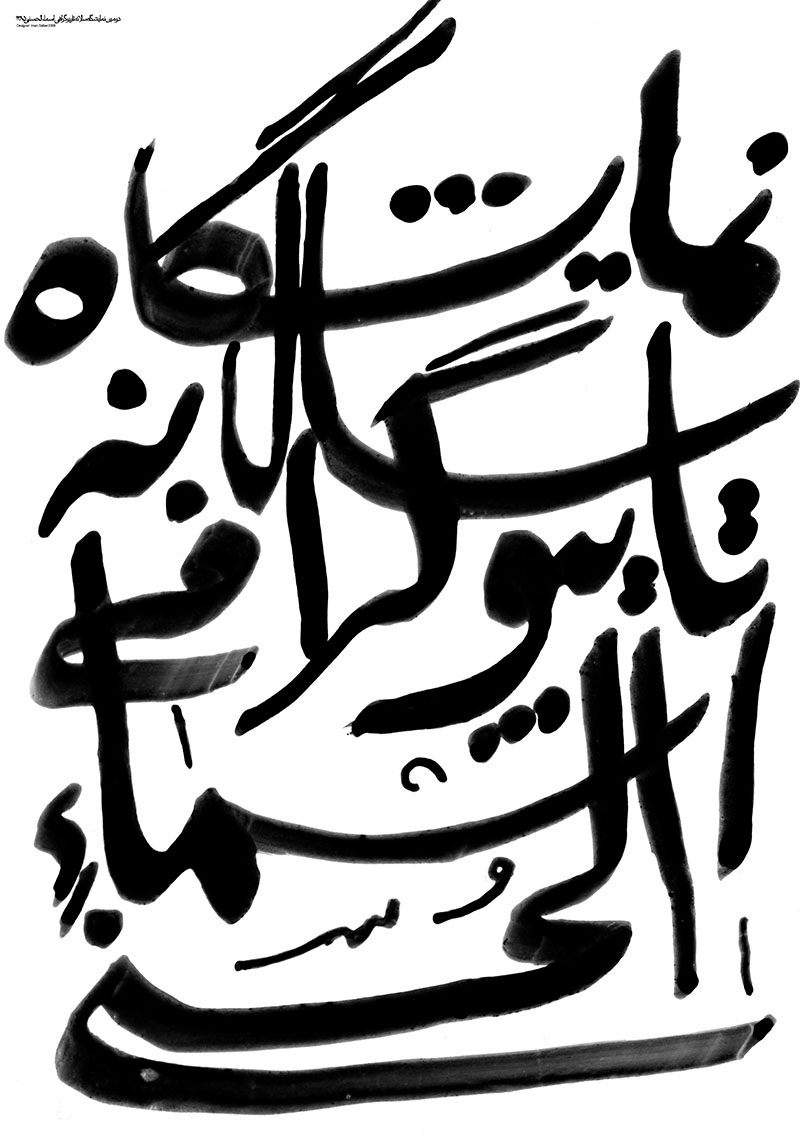 دومین نمایشگاه سالانه تایپوگرافی اسماء الحسنی
Designer: Iman Safaei 2009
نمایشگاه
سالانه
تایپوگرافی
اسماء
الحسنی